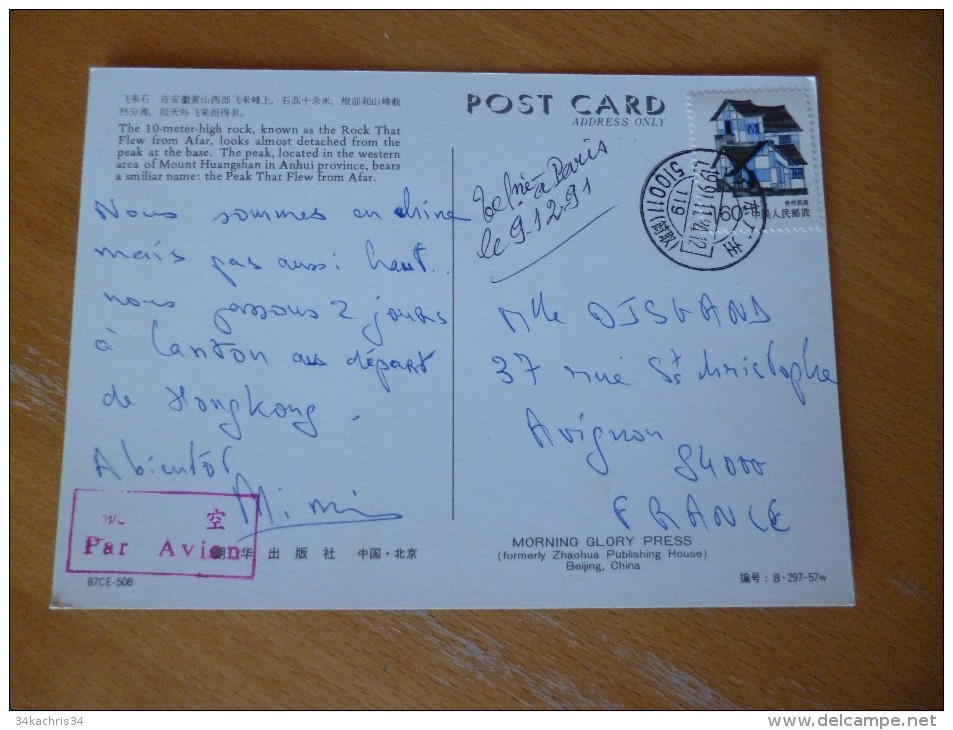 飞来石 在安徽黄山西部飞来峰上，石高十余米，根部和山峰截
然分离，似天外飞来而得名。
The 10-meter-high rock, known as the Rock That
Flew from Afar, looks almost detached from the
peak at the base. The peak, located in the western
area of Mount Huangshan in Anhui province, bears
a smiliar name: the Peak That Flew from Afar.
Nous sommes en chine
mais pas aussi haut..
nous passons 2 jours
à Canton au départ
de Hongkong.
A bientôt
Mimi
空
Par Avion
华 出 版 社 中国·北京
87CE-508
POST CARD
ADDRESS ONLY
à Paris
le 9.12.91
60
中国人民邮政
1991.11.
119
510011
Mlle
37 rue St christophe
Avignon
84000
FRANCE
MORNING GLORY PRESS
(formerly Zhaohua Publishing House)
Beijing, China
编号：8·297-57w
34kachris34
http://www.delcampe.net